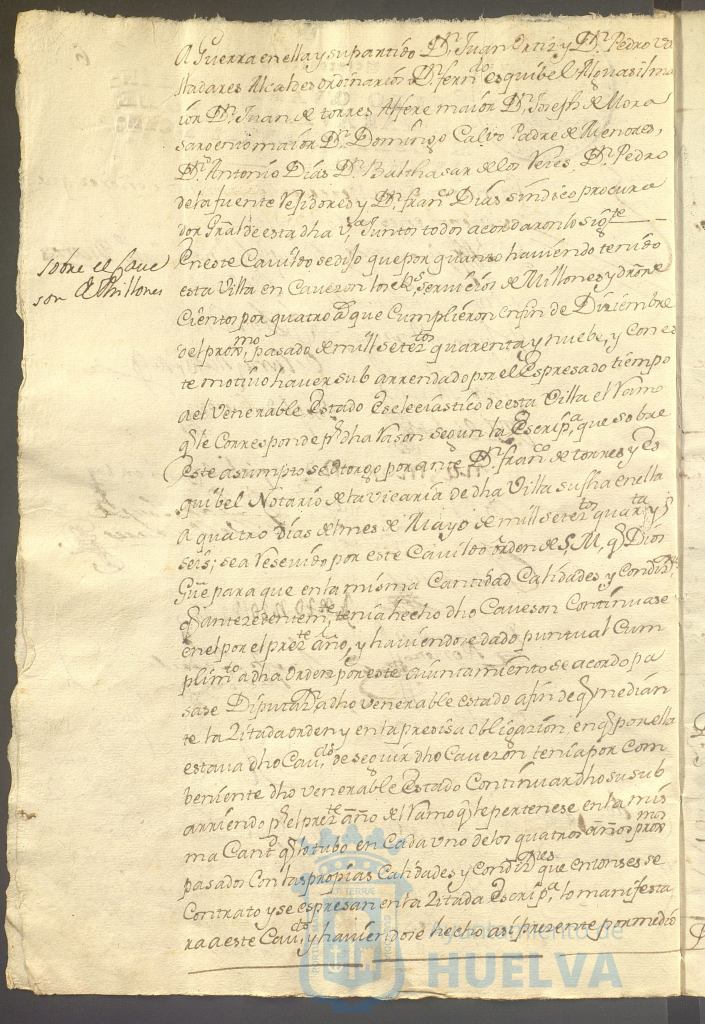 A Guerra en ella y su partido Dn. Juan Ortiz y Dn. Pedro
lladares Alcaldes ordinarios Dn. fern.do esquibel Alguasil ma
ior Dn. Juan de torres Alfere maior Dn. Joseph de Mora
sargento maior Dn. Domingo Calvo Padre de Menores,
Dn. Antonio Dias Dn. Balthasar de los Reies Dn. Pedro
de la fuente Residores y Dn. fran.co Dias sindico procura
dor Gral de esta dha v.a Juntos todos acordaron lo sig.te
sobre el Cave
son de Millones
En este Cavildo se dijo que por quanto haviendo tenido
esta Villa en Caveson los Rs. servicios de Millones y dros de
Cientos por quatro a.s que Cumplieron en fin de Diziembre
del prox.mo pasado de mill setez.tos quarenta y nuebe, y con es
te motivo haver sub arrendado por el Espresado tiempo
a el Venerable Estado Eclesiastico de esta Villa el Ramo
q le Corresponde pr. dha rason segun la Escrip.a que sobre
este asumpto se otorgo por ante Dn. fran.co de torres y Es
quibel Notario de la vicaria de dha Villa su fha en ella
a quatro dias del mes de Mayo de mill setez.tos quar.ta y
seis; se a resevido por este Cavildo orden de S. M. q Dios
Gûe para que en la misma Cantidad Calidades y Condiz.s
q antezedentem.te tenia hecho dho Caveson Continuase
en el por el prez.te año, y haviendose dado puntual Cum
plim.to a dha Orden por este aiuntamiento se acordo pa
sase Diputaz.n a dho venerable estado a fin de q median
te la Zitada orden y en la presisa obligazion en q por ella
estava dho Cav.do de seguir dho Caveson tenia por com
beniente dho venerable Estado Continuar dho su sub
arriendo pr. el prez.te año del Ramo q le pertenese en la mis
ma Cant.d q lo tubo en Cada uno de los quatro años prox.mos
pasados Con las propias Calidades y Condiz.nes que entonses se
Contrato y se espresan en la Zitada Escrip.a lo manifesta
ra a este Cav.do y haviendose hecho asi presente por medio
Ayuntamiento de
HUELVA